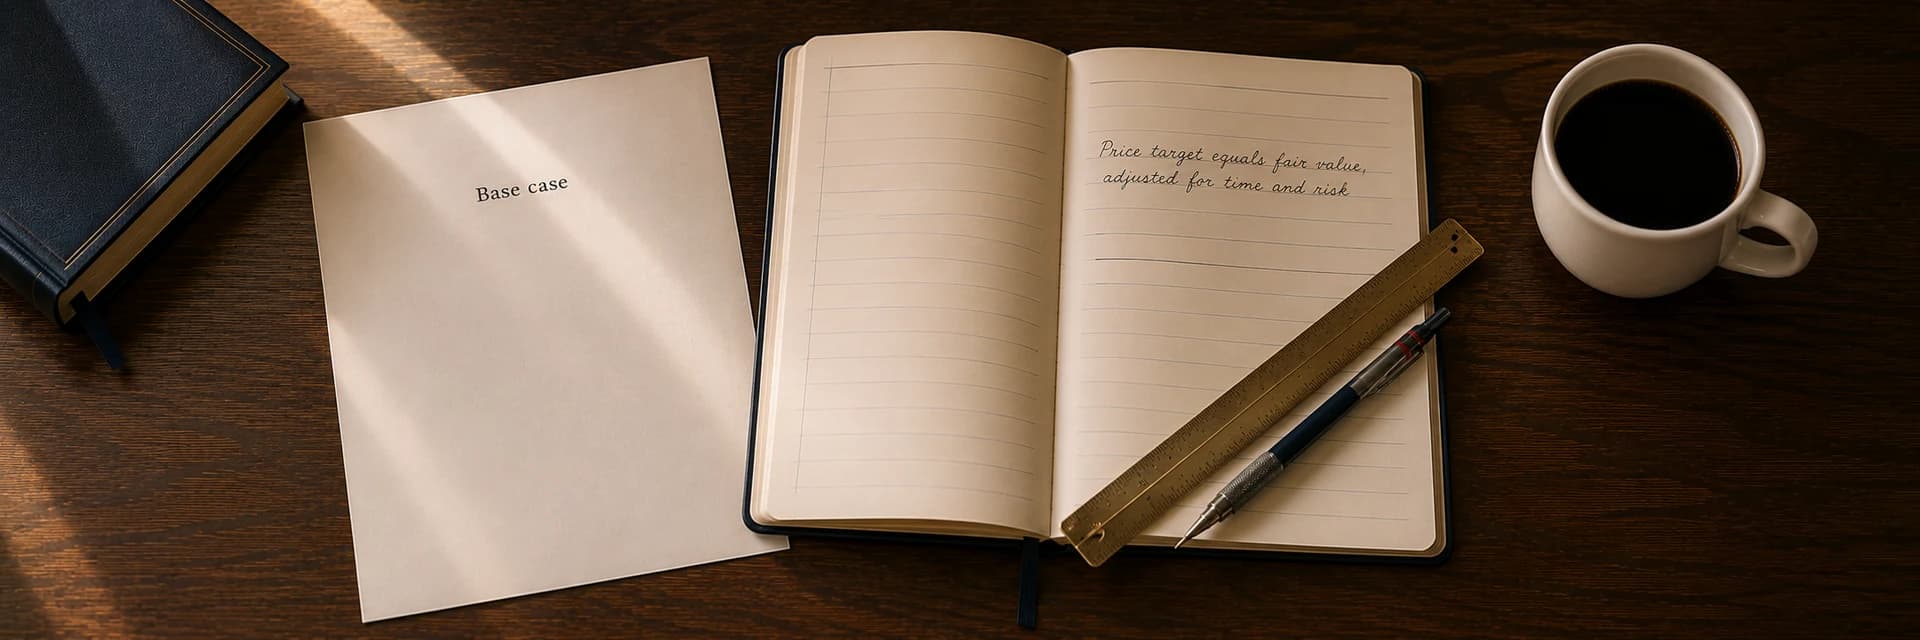 Base case
Price target equals fair value,
adjusted for time and risk